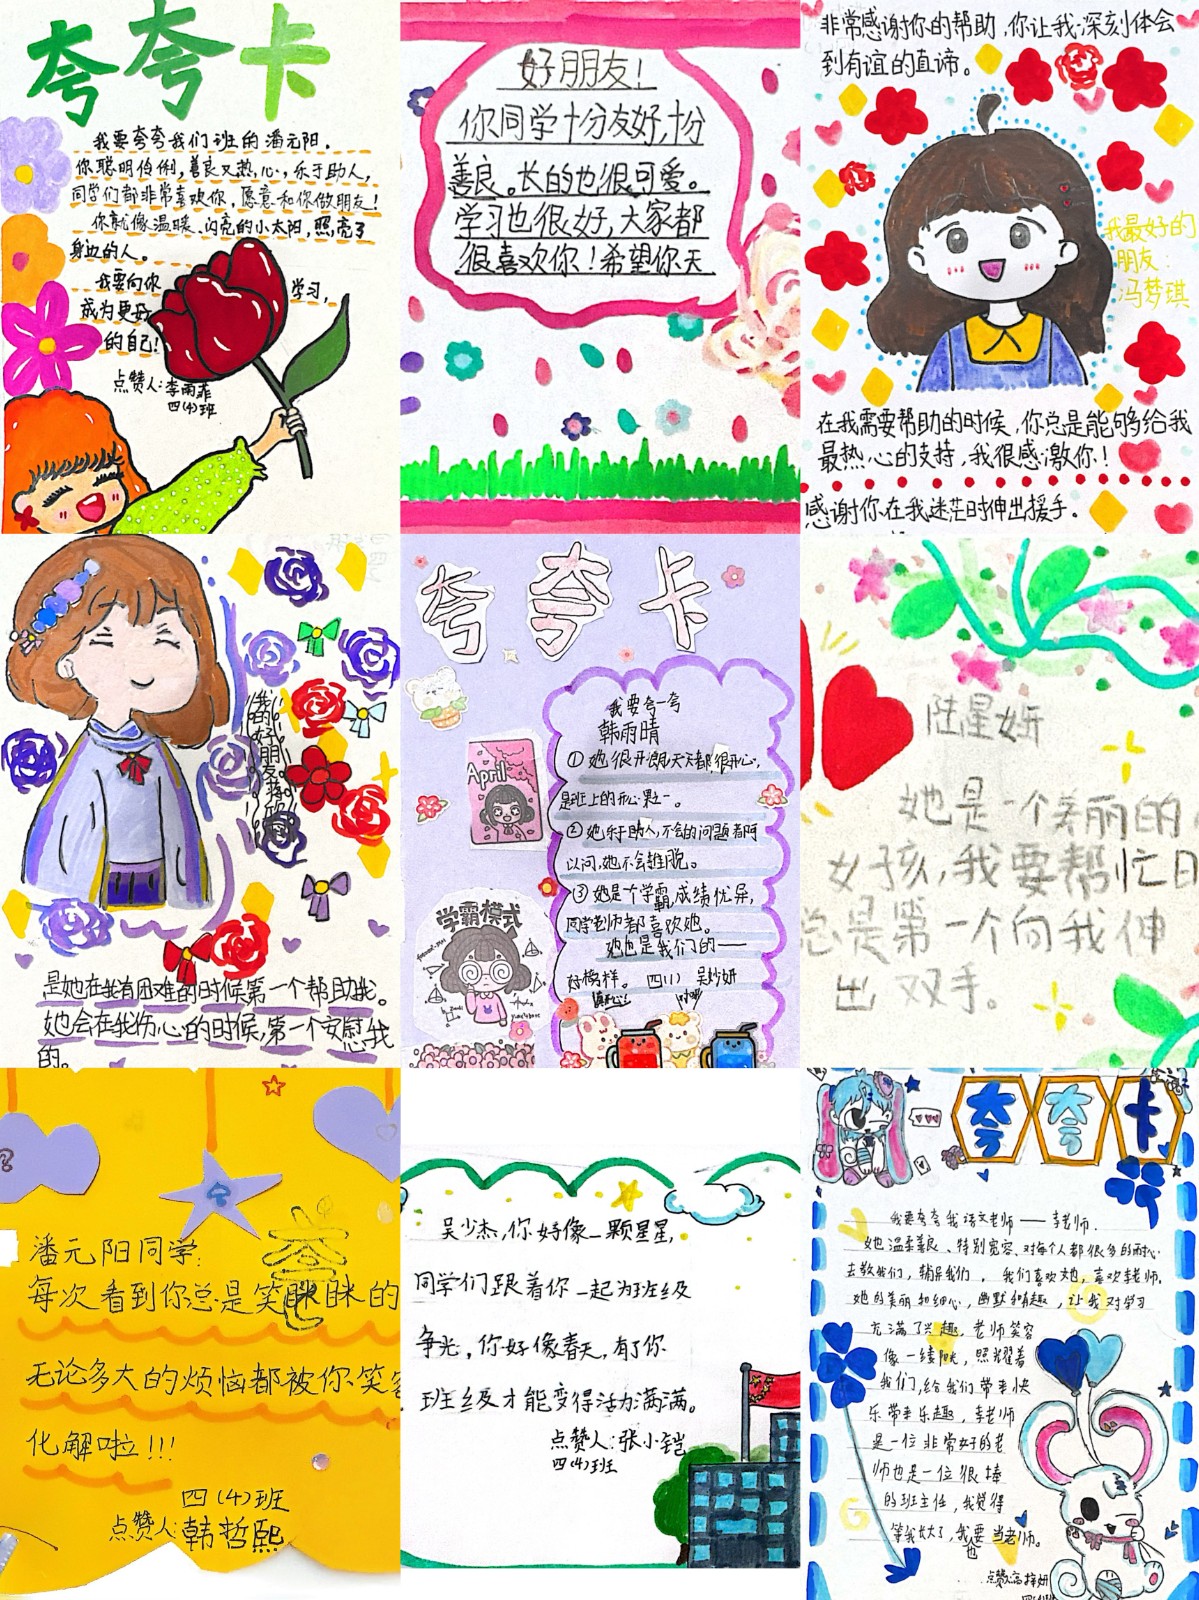 夸夸卡
我要夸夸我们班的潘元阳.
你聪明伶俐,善良又热心,乐于助人,
同学们都非常喜欢你,愿意和你做朋友!
你就像温暖、闪亮的小太阳,照亮了
身边的人。
我要向你 学习,
成为更好
的自己!
点赞人:李雨菲
四(4)班
好朋友!
你同学十分友好,十分
善良。长的也很可爱。
学习也很好,大家都
很喜欢你!希望你天
非常感谢你的帮助,你让我深刻体会
到有谊的直谛。
我最好的
朋友:
冯梦琪
在我需要帮助的时候,你总是能够给我
最热心的支持,我很感激你!
感谢你在我迷茫时伸出援手。
我的好朋友
是她在我有困难的时候第一个帮助我。
她会在我伤心的时候,第一个安慰我
的。
夸夸卡
我要夸一夸
韩雨晴
①她很开朗,天天都很开心,
是班上的开心果一。
②她乐于助人,不会的问题都可
以问,她不会推脱。
③她是个学霸,成绩优异,
同学老师都喜欢她。
她也是我们的一一
好榜样。 四(1) 吴妙妍
April
学霸模式
陆星妍
她是一个美丽的
女孩,我要帮忙日
总是第一个向我伸
出双手。
潘元阳同学:
每次看到你总是笑眯眯的
无论多大的烦恼都被你笑容
化解啦!!!
四(4)班
点赞人:韩哲熙
吴少杰,你好像一颗星星,
同学们跟着你一起为班级
争光,你好像春天,有了你
班级才能变得活力满满。
点赞人:张小铠
四(4)班
夸夸卡
我要夸夸我语文老师——李老师.
她温柔善良、特别宽容、对每个人都很多的耐心
去教我们,辅导我们。我们喜欢她,喜欢李老师。
她的美丽和细心,幽默和有趣,让我对学习
充满了兴趣,老师笑容
像一缕阳光,照耀着
我们,给我们带来快
乐带来乐趣,李老师
是一位非常好的老
师也是一位很棒
的班主任,我觉得
等我长大了,我也要当老师。
点赞人:高梓妍